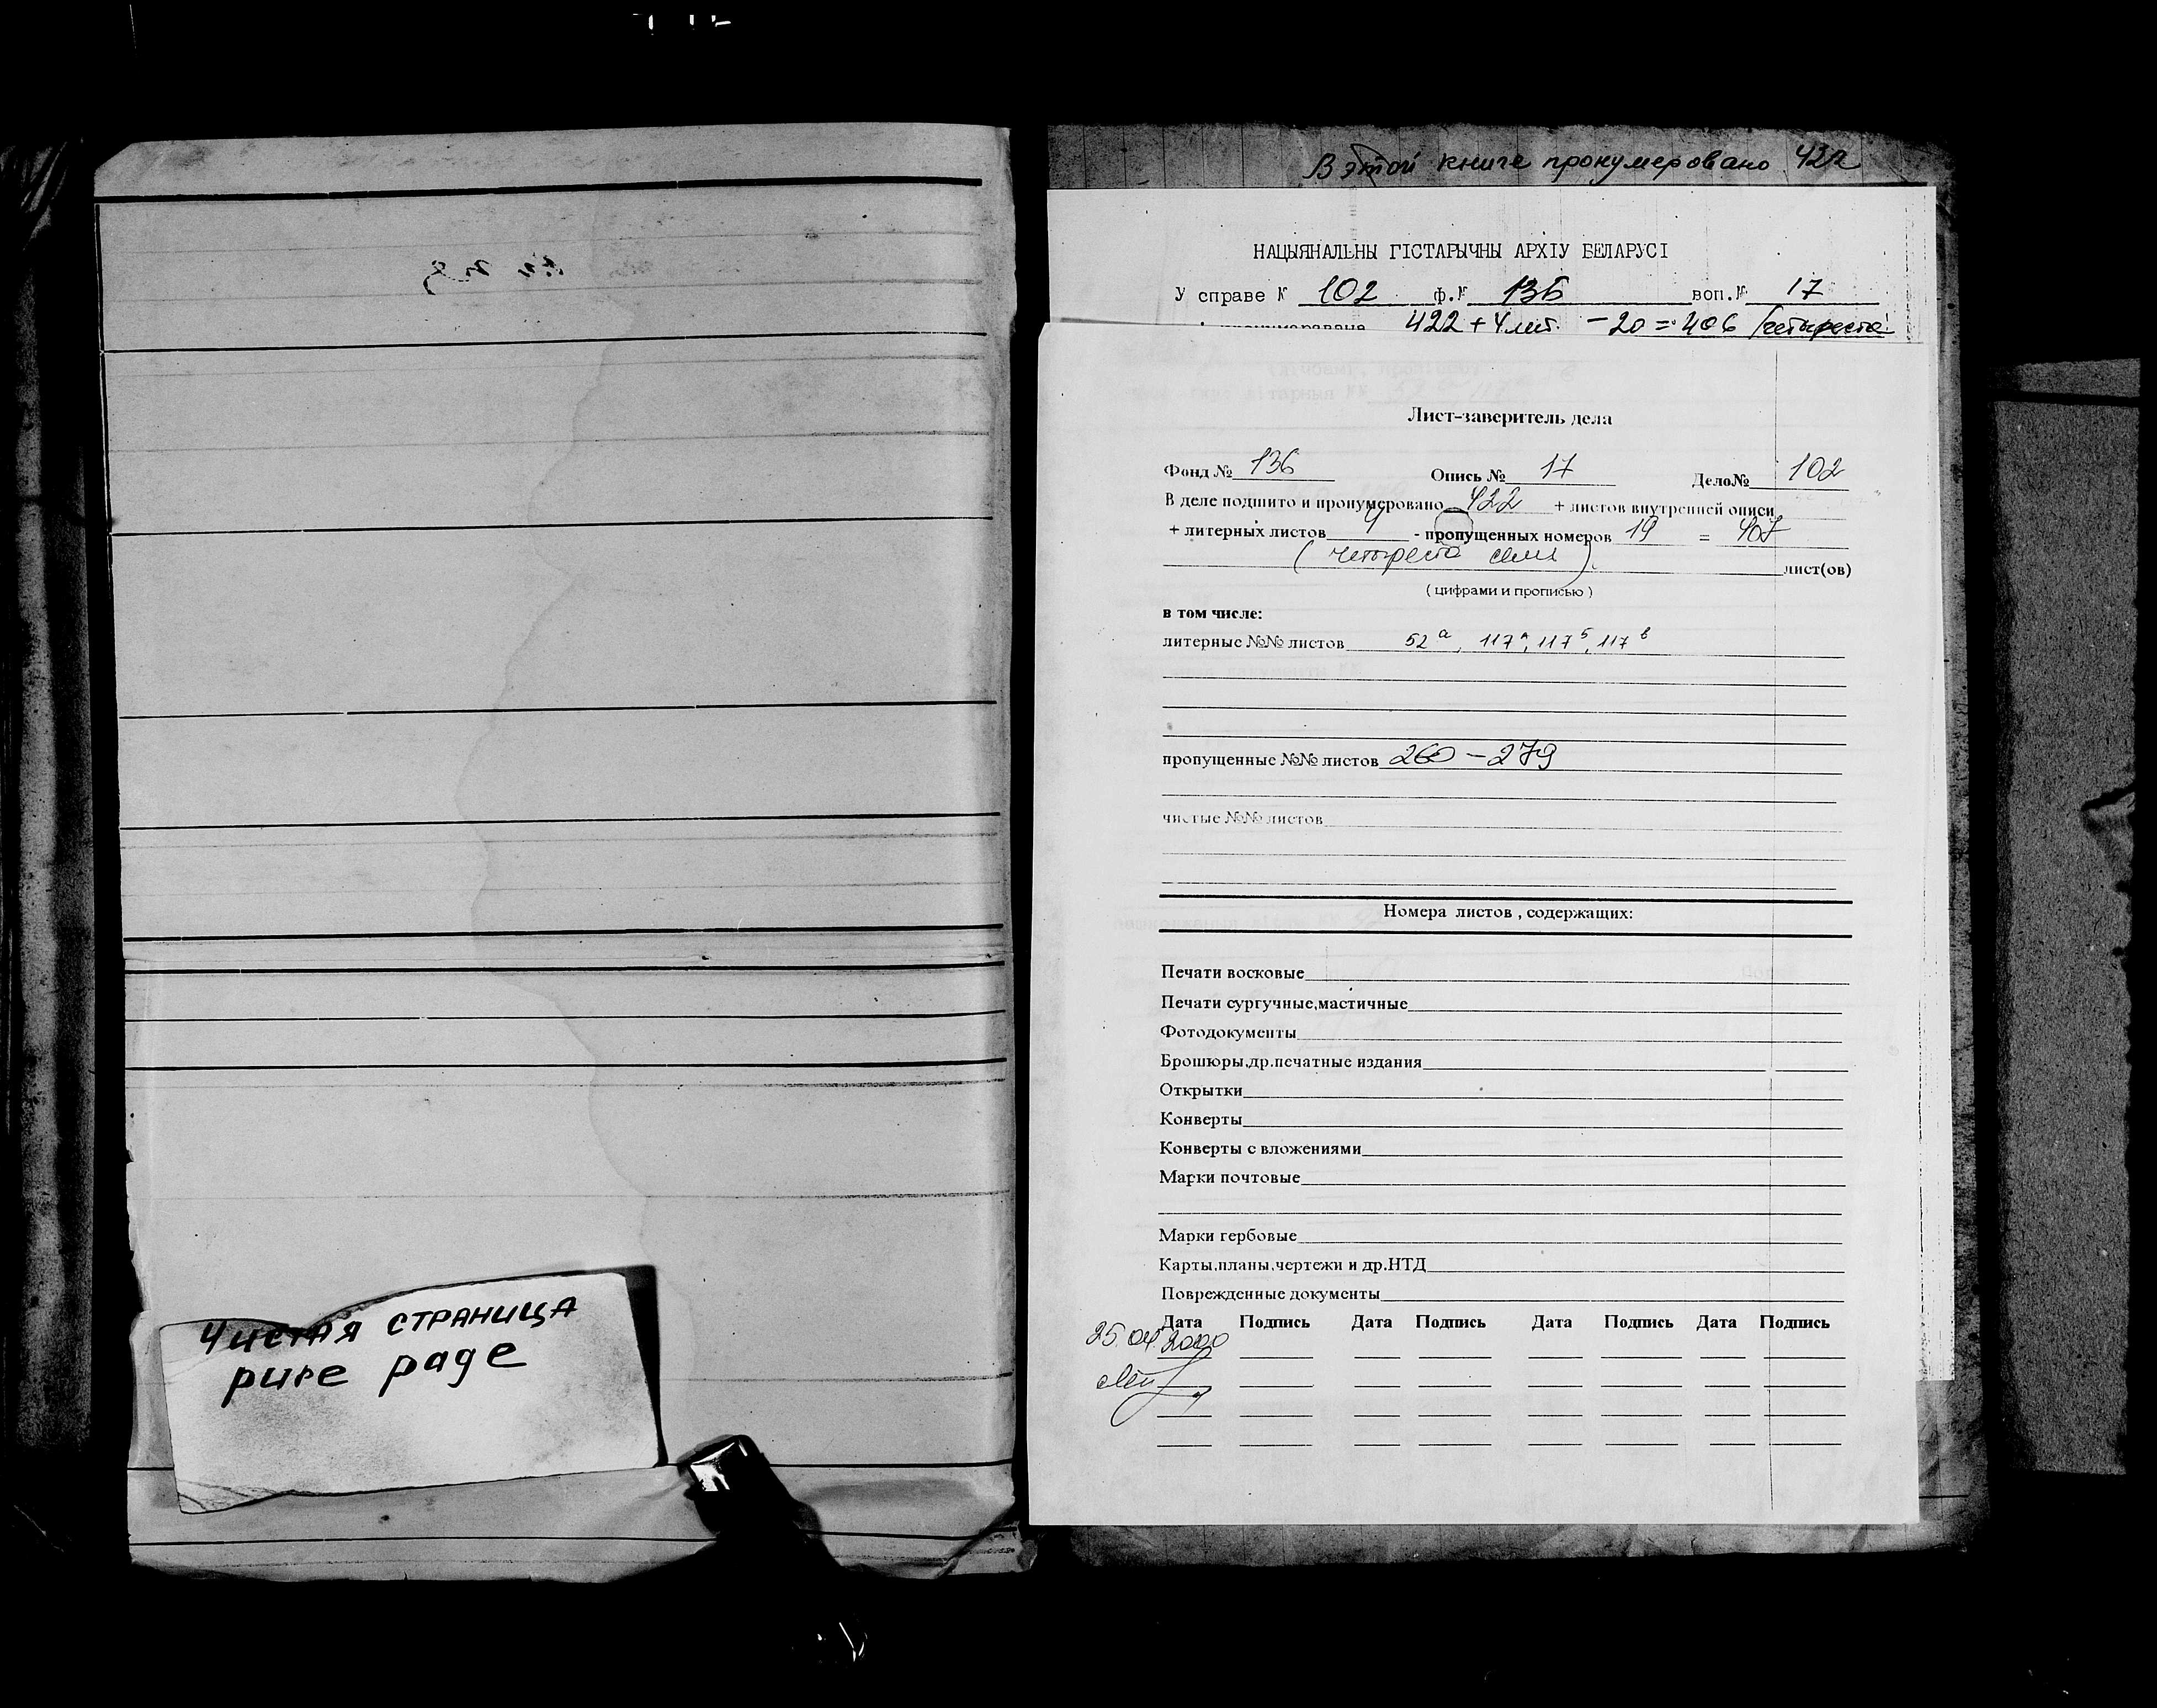 Чистая страница
pure page
В этой книге пронумеровано 422
НАЦЫЯНАЛЬНЫ ГІСТАРЫЧНЫ АРХІУ БЕЛАРУСІ
У справе № 102 ф.№ 136 воп.№ 17
422 + 4 лит. - 20 = 406 /четыреста
Лист-заверитель дела
Фонд № 136 Опись № 17 Дело№ 102
В деле подшито и пронумеровано 422 + листов внутренней описи
+ литерных листов 4 - пропущенных номеров 19 = 407
(четыреста семь) лист(ов)
( цифрами и прописью )
в том числе:
литерные №№ листов 52а, 117а, 117б, 117в
пропущенные №№ листов 260 – 279
чистые №№ листов
Номера листов , содержащих:
Печати восковые
Печати сургучные,мастичные
Фотодокументы
Брошюры,др.печатные издания
Открытки
Конверты
Конверты с вложениями
Марки почтовые
Марки гербовые
Карты,планы,чертежи и др.НТД
Поврежденные документы
Дата Подпись Дата Подпись Дата Подпись Дата Подпись
25.04.2000